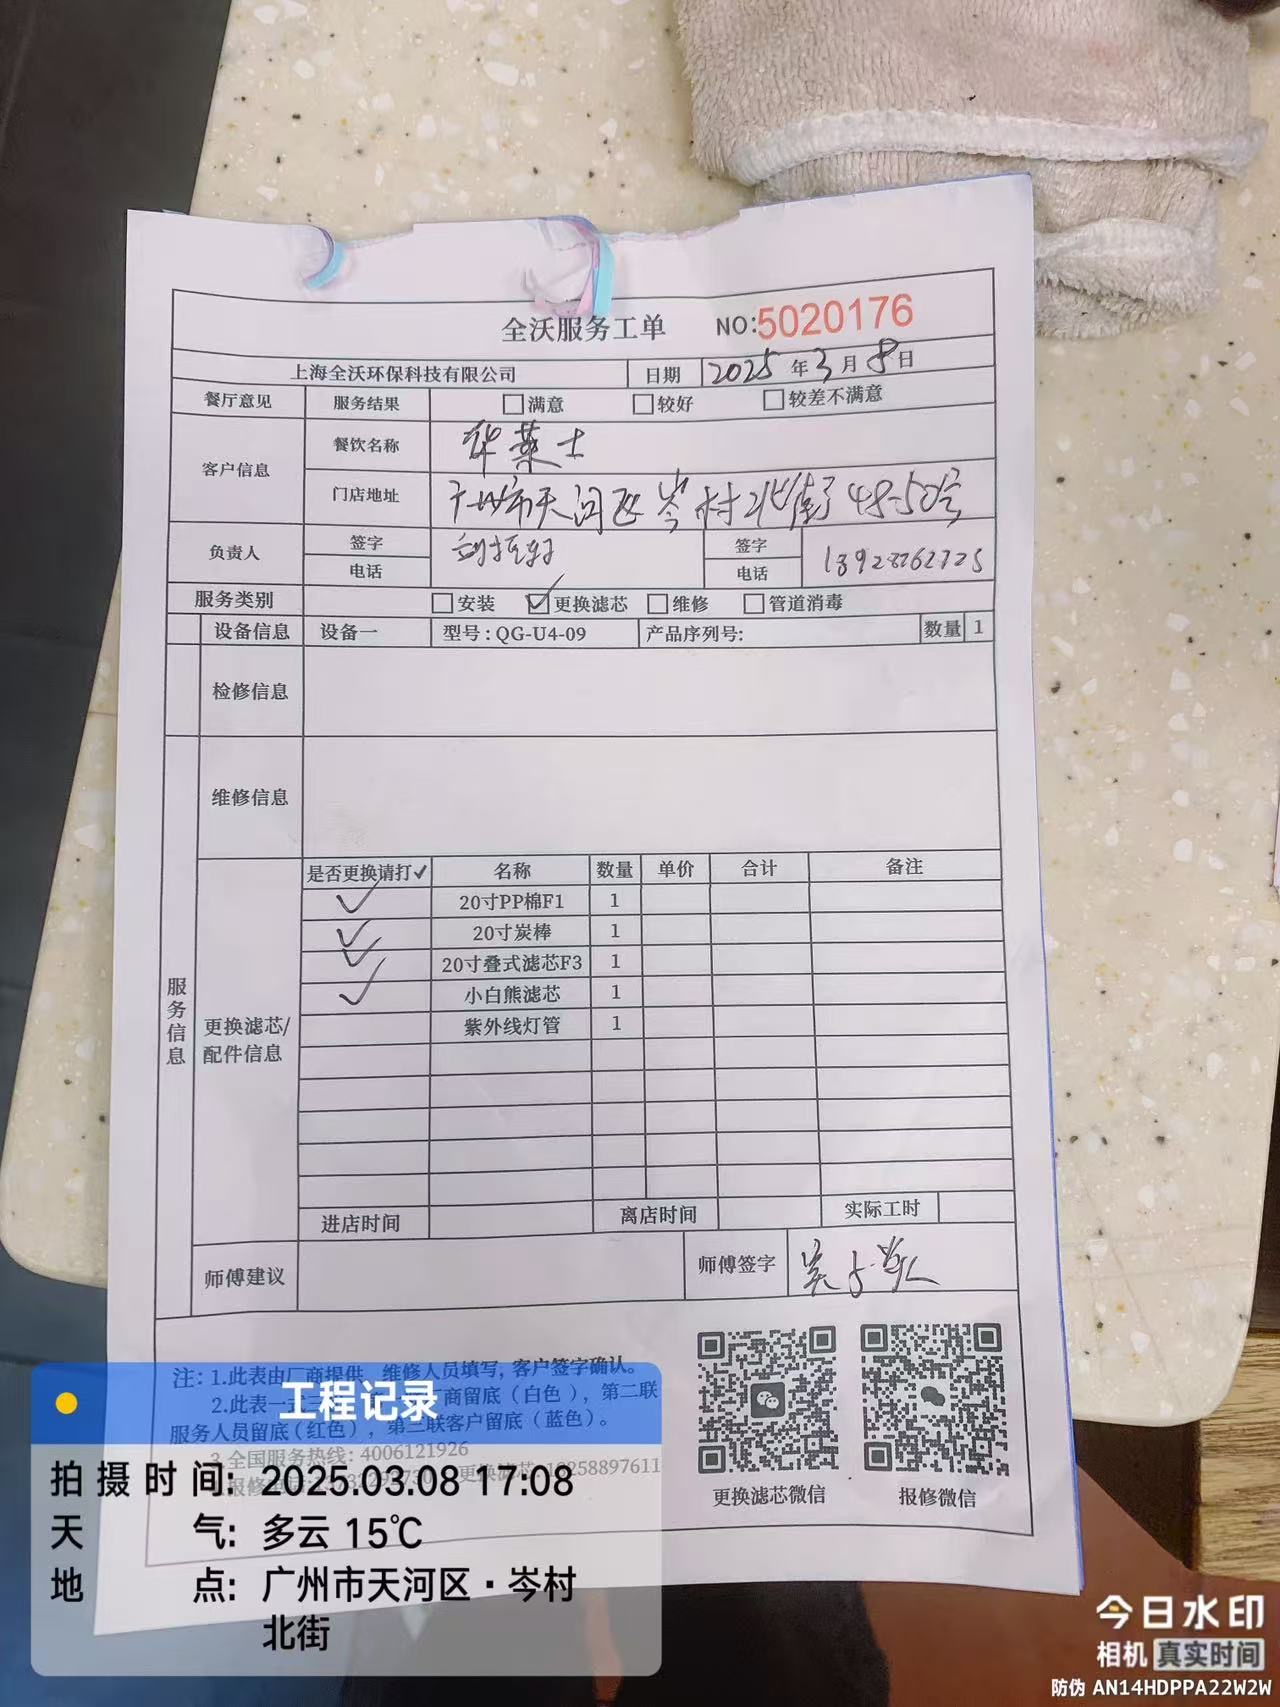 全沃服务工单 NO:5020176
上海全沃环保科技有限公司 日期 2025年3月8日
餐厅意见 服务结果 满意 较好 较差不满意
客户信息 餐饮名称 华莱士
门店地址 广州市天河区岑村北街48-50号
负责人 签字 签字
电话 电话
服务类别 安装 更换滤芯 维修 管道消毒
设备信息 设备一 型号:QG-U4-09 产品序列号: 数量 1
检修信息
维修信息
服务信息
更换滤芯/
配件信息
是否更换请打✓ 名称 数量 单价 合计 备注
✓ 20寸PP棉F1 1
✓ 20寸炭棒 1
✓ 20寸叠式滤芯F3 1
✓ 小白熊滤芯 1
紫外线灯管 1
进店时间 离店时间 实际工时
师傅建议 师傅签字
注:1.此表由厂商提供,维修人员填写,客户签字确认。
2.此表一式三 厂商留底(白色),第二联
服务人员留底(红色),第三联客户留底(蓝色)。
3.全国服务热线:4006121926
更换滤芯微信 报修微信
工程记录
拍摄时间:2025.03.08 17:08
天气:多云 15℃
地点:广州市天河区·岑村
北街
今日水印
相机 真实时间
防伪 AN14HDPPA22W2W